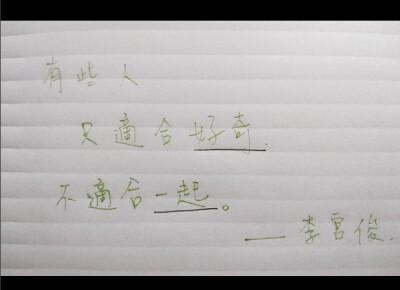 有些人
只適合好奇.
不適合一起。
——李宮俊.